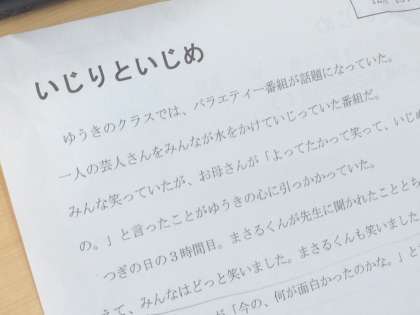 いじりといじめ
ゆうきのクラスでは、バラエティー番組が話題になっていた。
一人の芸人さんをみんなが水をかけていじっていた番組だ。
みんな笑っていたが、お母さんが「よってたかって笑って、いじめ
の。」と言ったことがゆうきの心に引っかかっていた。
つぎの日の3時間目。まさるくんが先生に聞かれたこととち
えて、みんなはどっと笑いました。まさるくんも笑いました
が「今の、何が面白かったのかな。」と